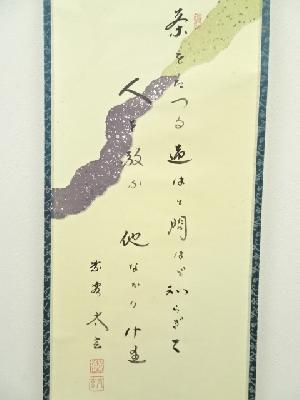 茶をたつる道はと問はば和らぎて
人を敬ふ他なかりけり
太玄